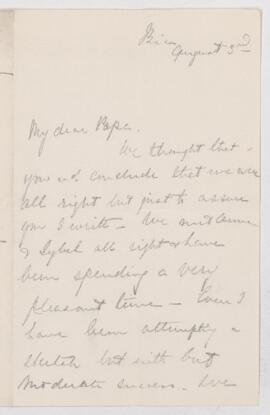 August 3rd
My dear Papa.
We thought that
you wd conclude that we were
all right but just to assure
you I write - We met
& Sybil all right & have
been spending a very
pleasant time - Even I
have been attempting a
sketch but with but
moderate success. We